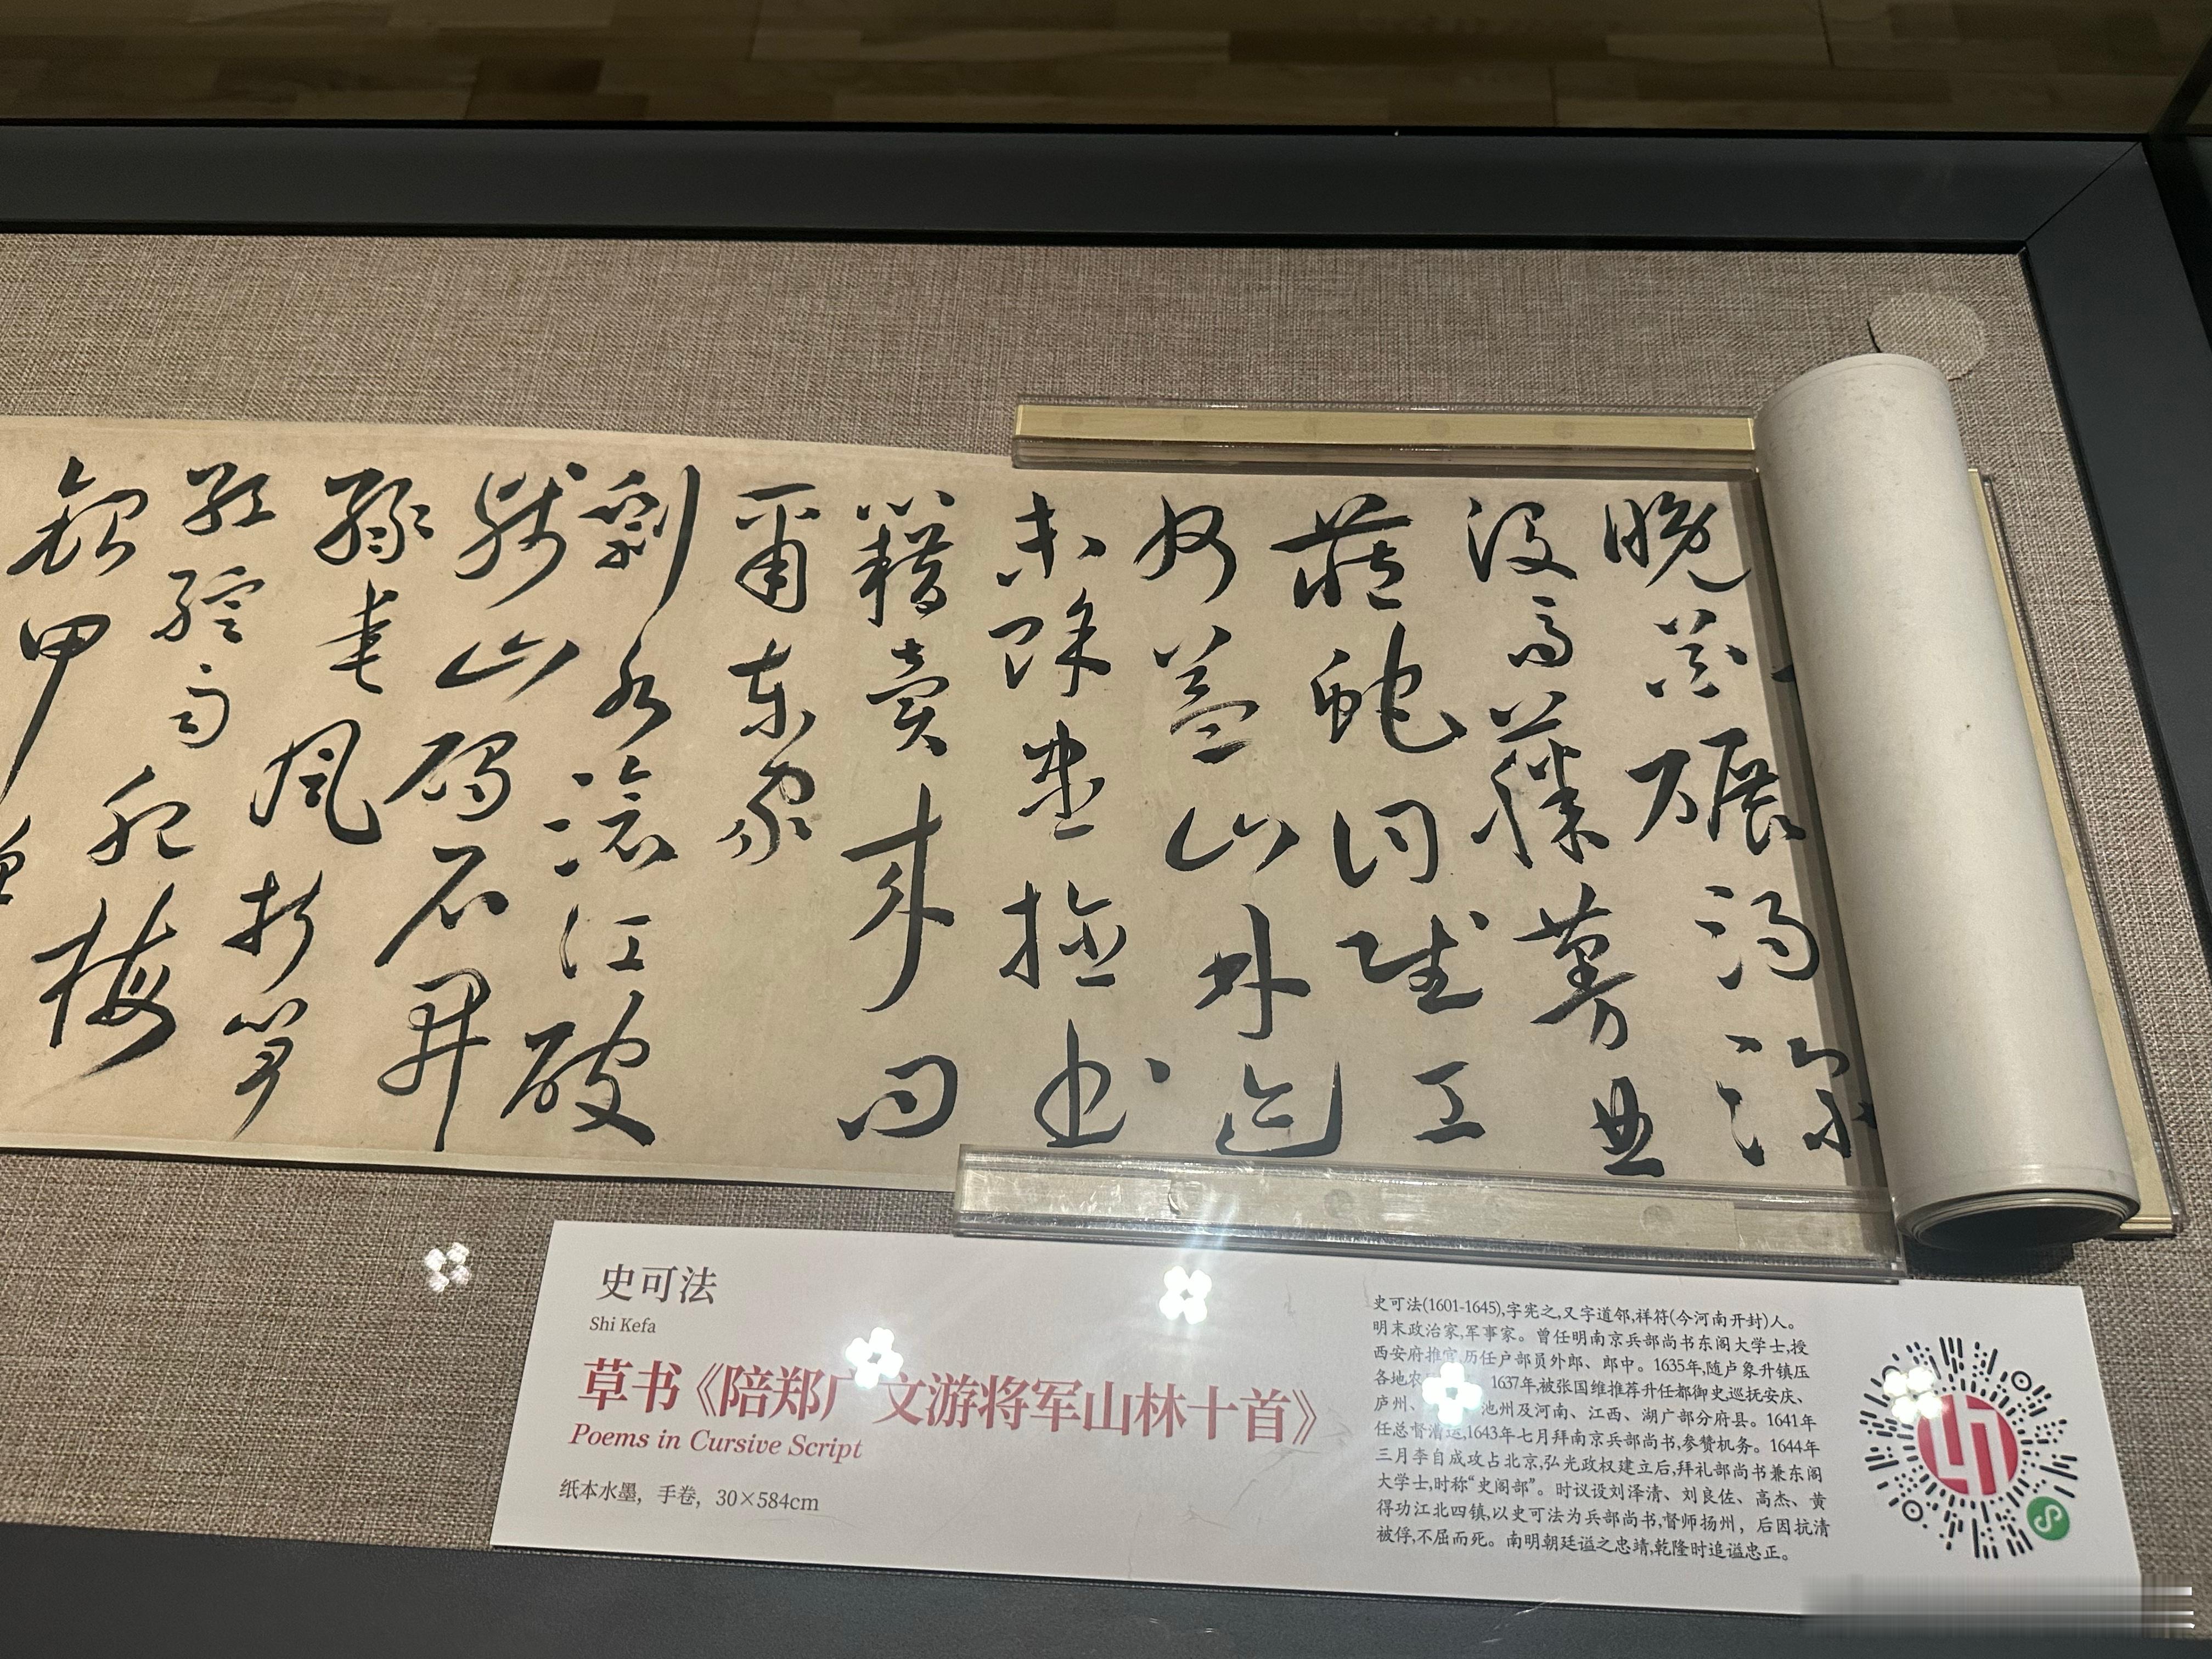 晚花碾渦深
沒馬藤蔓曲
藏蛇詞賦工
無益山林迹
未賒盡捻書
籍賣來問
爾東家
剩水滄江破
殘山碣石開
緑垂風折筍
紅綻雨肥梅
銀甲
史可法
Shi Kefa
草书《陪郑广文游将军山林十首》
Poems in Cursive Script
纸本水墨，手卷，30×584cm
史可法(1601-1645),字宪之,又字道邻,祥符(今河南开封)人。
明末政治家,军事家。曾任明南京兵部尚书东阁大学士,授
西安府推官,历任户部员外郎、郎中。1635年,随卢象升镇压
各地农 1637年,被张国维推荐升任都御史巡抚安庆、
庐州、 池州及河南、江西、湖广部分府县。1641年
任总督漕运,1643年七月拜南京兵部尚书,参赞机务。1644年
三月李自成攻占北京,弘光政权建立后,拜礼部尚书兼东阁
大学士,时称“史阁部”。时议设刘泽清、刘良佐、高杰、黄
得功江北四镇,以史可法为兵部尚书,督师扬州，后因抗清
被俘,不屈而死。南明朝廷谥之忠靖,乾隆时追谥忠正。